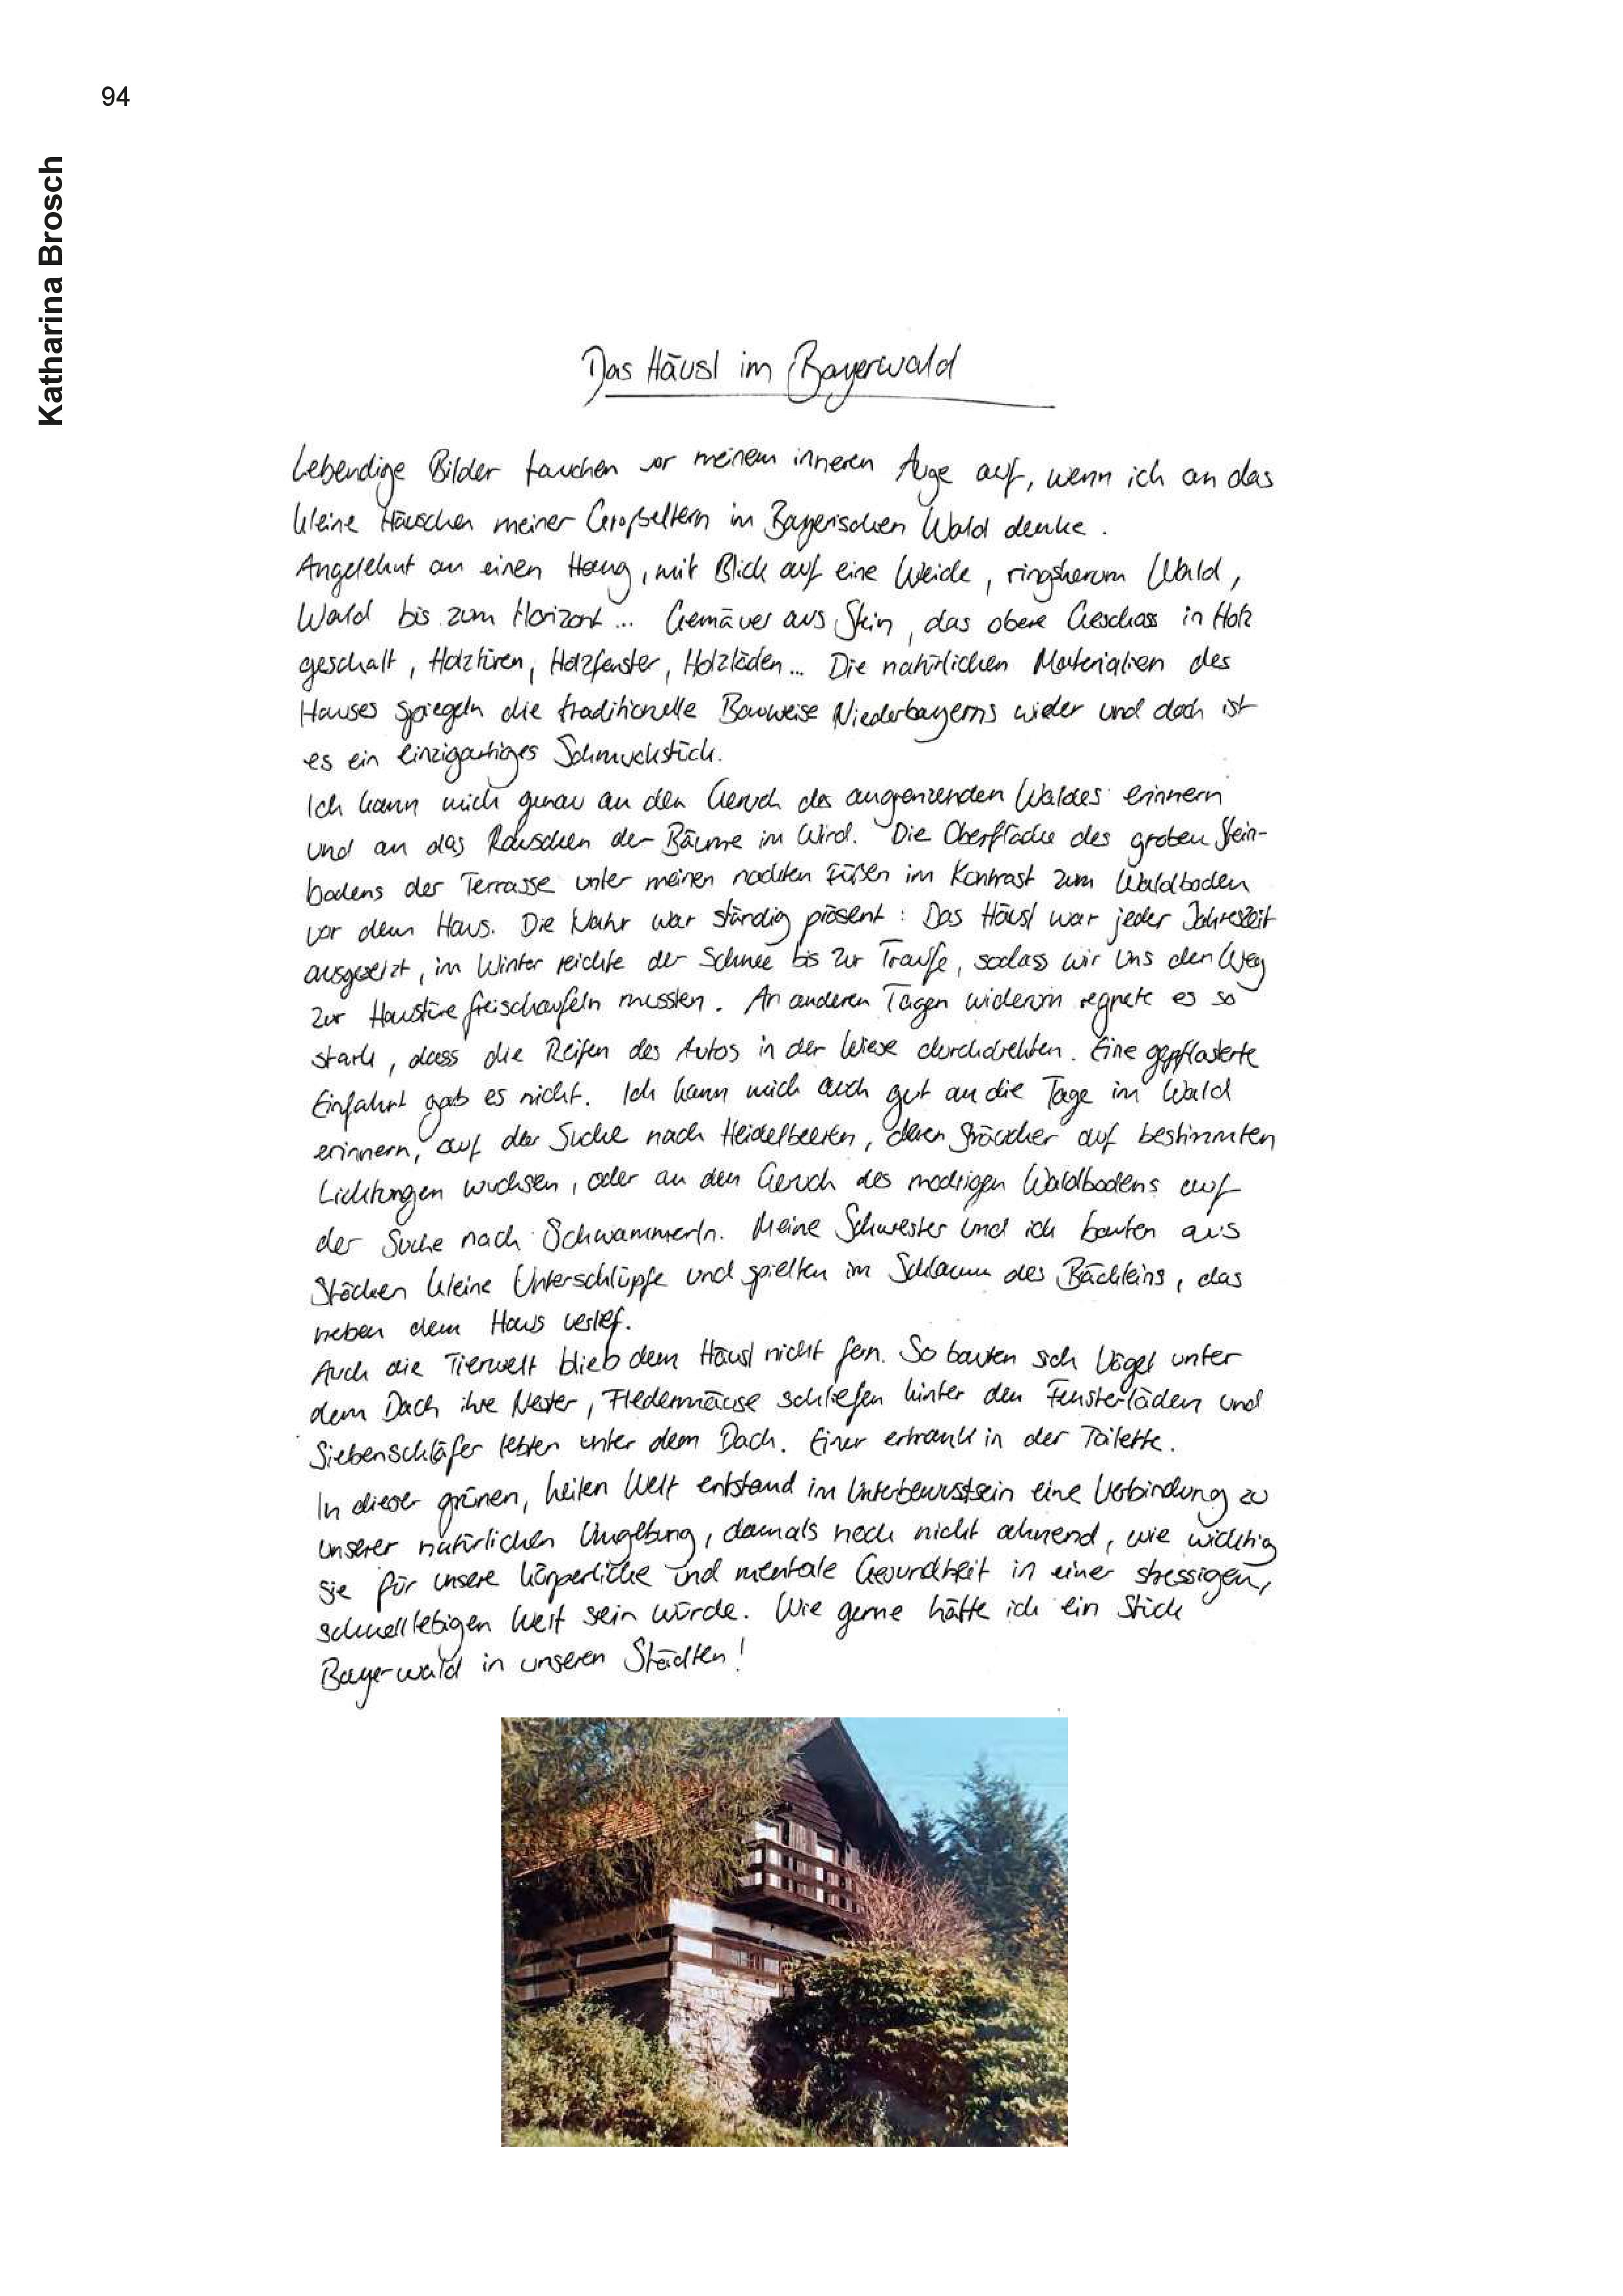 94
Katharina Brosch
Das Häusl im Bayerwald
Lebendige Bilder tauchen vor meinem inneren Auge auf, wenn ich an das
kleine Häuschen meiner Großeltern im Bayerischen Wald denke.
Angelehnt an einen Hang, mit Blick auf eine Weide, ringsherum Wald,
Wald bis zum Horizont... Gemäuer aus Stein, das obere Geschoss in Holz
geschalt, Holztüren, Holzfenster, Holzläden... Die natürlichen Materialien des
Hauses spiegeln die traditionelle Bauweise Niederbayerns wider und doch ist
es ein einzigartiges Schmuckstück.
Ich kann mich genau an den Geruch des angrenzenden Waldes erinnern
und an das Rauschen der Bäume im Wind. Die Oberfläche des groben Stein-
bodens der Terrasse unter meinen nackten Füßen im Kontrast zum Waldboden
vor dem Haus. Die Natur war ständig präsent: Das Häusl war jeder Jahreszeit
ausgesetzt, im Winter reichte der Schnee bis zur Traufe, sodass wir uns den Weg
zur Haustüre freischaufeln mussten. An anderen Tagen wiederum regnete es so
stark, dass die Reifen des Autos in der Wiese durchdrehten. Eine gepflasterte
Einfahrt gab es nicht. Ich kann mich auch gut an die Tage im Wald
erinnern, auf der Suche nach Heidelbeeren, deren Sträucher auf bestimmten
Lichtungen wuchsen, oder an den Geruch des modrigen Waldbodens auf
der Suche nach Schwammerln. Meine Schwester und ich bauten aus
Stöcken kleine Unterschlüpfe und spielten im Schlamm des Bächleins, das
neben dem Haus verlief.
Auch die Tierwelt blieb dem Häusl nicht fern. So bauten sich Vögel unter
dem Dach ihre Nester, Fledermäuse schliefen hinter den Fensterläden und
Siebenschläfer lebten unter dem Dach. Einer ertrank in der Toilette.
In dieser grünen, heilen Welt entstand im Unterbewusstsein eine Verbindung zu
unserer natürlichen Umgebung, damals noch nicht ahnend, wie wichtig
sie für unsere körperliche und mentale Gesundheit in einer stressigen,
schnelllebigen Welt sein würde. Wie gerne hätte ich ein Stück
Bayerwald in unseren Städten!